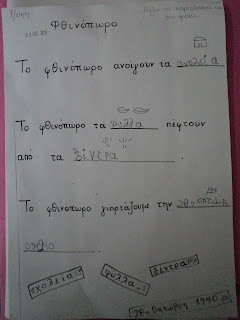 Φθινόπωρο
Το φθινόπωρο ανοίγουν τα σχολεία
Το φθινόπωρο τα φυλλα πέφτουν
από τα δέντρα .
Το φθινόπωρο γιορτάζουμε την 28η
σχολεία φύλλα δέντρα
28η Οκτώβρη 1940